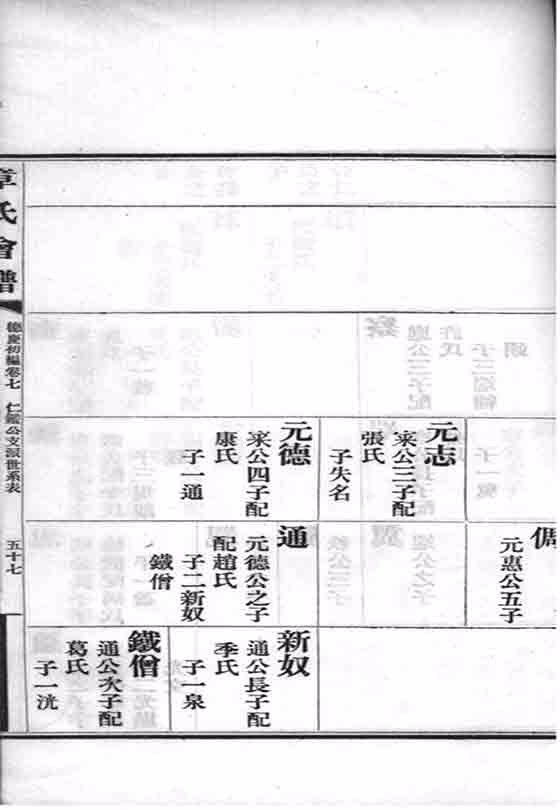 元志
寀公三子配
張氏
子失名
元德
寀公四子配
康氏
子一通
倜
元惠公五子
通
元德公之子
配趙氏
子二新奴
鐵僧
新奴
通公長子配
季氏
子一泉
鐵僧
通公次子配
葛氏
子一洸
章氏會譜
德慶初編卷七
仁鑑公支派世系表
五十七